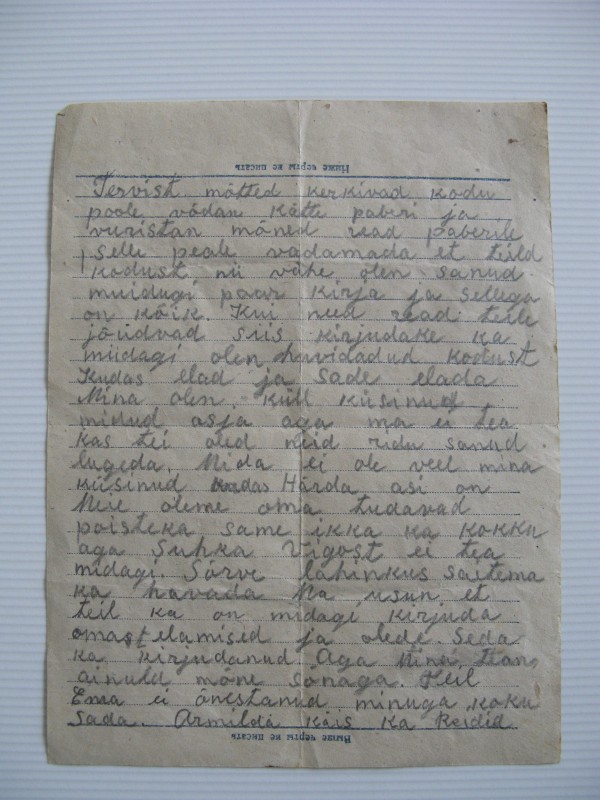 Ниже черты не писать
Tervist mõtted kerkivad kodu
poole võdan kätte paberi ja
vuristan mõned read paberile
selle peale vadamada et teild
kodust nii vähe olen sanud
muidugi paar kirja ja sellega
on kõik. Kui need read teile
jõudvad siis kirjudake ka
midagi olen huvidadud kodust
Kudas elad ja sade elada
Mina olen küll küsinud
minud asja aga ma ei tea
kas tei oled neid ridu sanud
lugeda. Mida ei ole veel mina
küsinud kudas Härda asi on
Meie oleme oma tudavad
poisteka same ikka ka kokku
aga Suhka Vigost ei tea
midagi. Sõrve lähinkus saitema
ka havada Ma usun et
teil ka on midagi kirjuda
omast elamised ja olede. Seda
ka kirjudanud Aga Mina tean
ainuld mõne sõnaga. Keil
Ema ei õnestanud minuga koku
sada. Armilda käis ka
Выше черты не писать